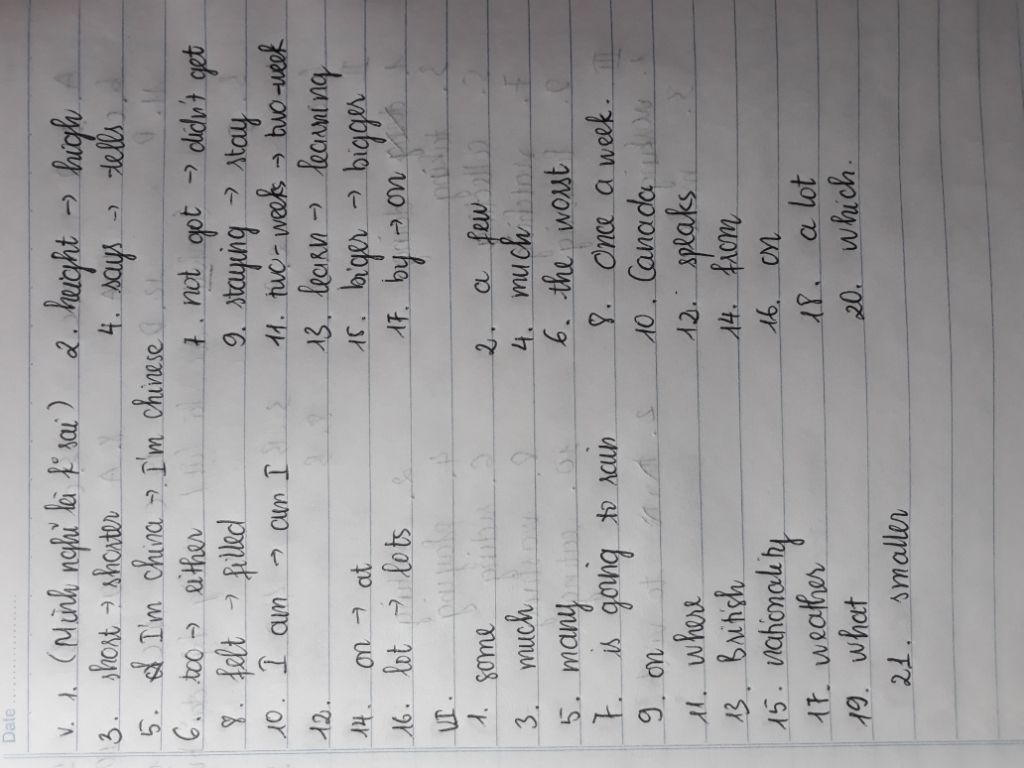 Date
V. 1. (Mình nghĩ là k° sai) 2. height → high
3. short → shorter 4. says → tells
5. I'm china → I'm chinese
6. too → either 7. not got → didn't get
8. felt → filled 9. staying → stay
10. I am → am I 11. two-weeks → two-week
12. 13. learn → learning
14. on → at 15. biger → bigger
16. lot → lots 17. by → on
VI.
1. some 2. a few
3. much 4. much
5. many 6. the worst
7. is going to rain 8. Once a week.
9. on 10. Canada
11. where 12. speaks
13. British 14. from
15. nationality 16. on
17. weather 18. a lot
19. what 20. which.
21. smaller